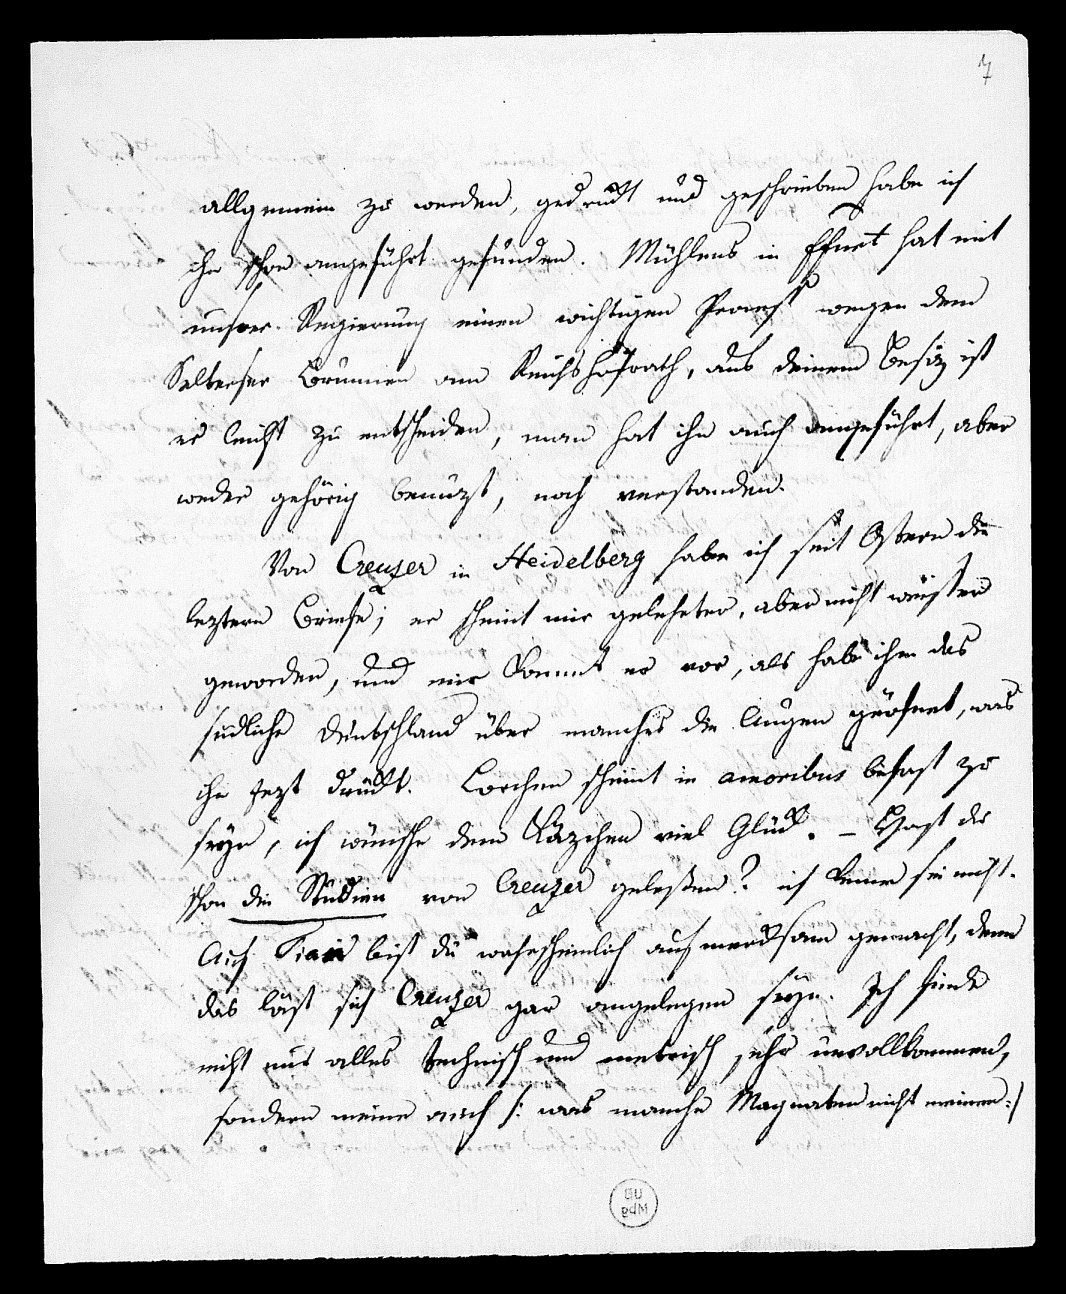 7
allgemein zu werden, gedruckt und geschrieben habe ich
ihn schon angeführt gefunden. Mühlens in Ffurt hat mit
unsrer Regierung einen wichtigen Proceß wegen dem
Selterser Brunnen am Reichshofrath, aus deinem Besiz ist
er leicht zu entscheiden, man hat ihn auch angeführt, aber
weder gehörig benuzt, noch verstanden.
Von Creuzer in Heidelberg habe ich seit Ostern die
leztern Briefe; er scheint mir gelehrter, aber nicht
geworden, und mir kommt es vor, als habe ihm das
südliche Deutschland über manches die Augen geöfnet, was
ihn jezt drückt. Lorchen scheint in amoribus befast zu
seyn, ich wünsche dem Käzchen viel Glück. – Hast du
schon die Studien von Creuzer gelesen? ich kenne sie nicht.
Auf Tian bist du wahrscheinlich aufmerksam gemacht, denn
das läst sich Creuzer gar angelegen seyn. Ich finde
nicht nur alles technisch und metrisch sehr unvollkommen,
sondern meine auch /: was manche Magnaten nicht meinen :/
UB
Mbg